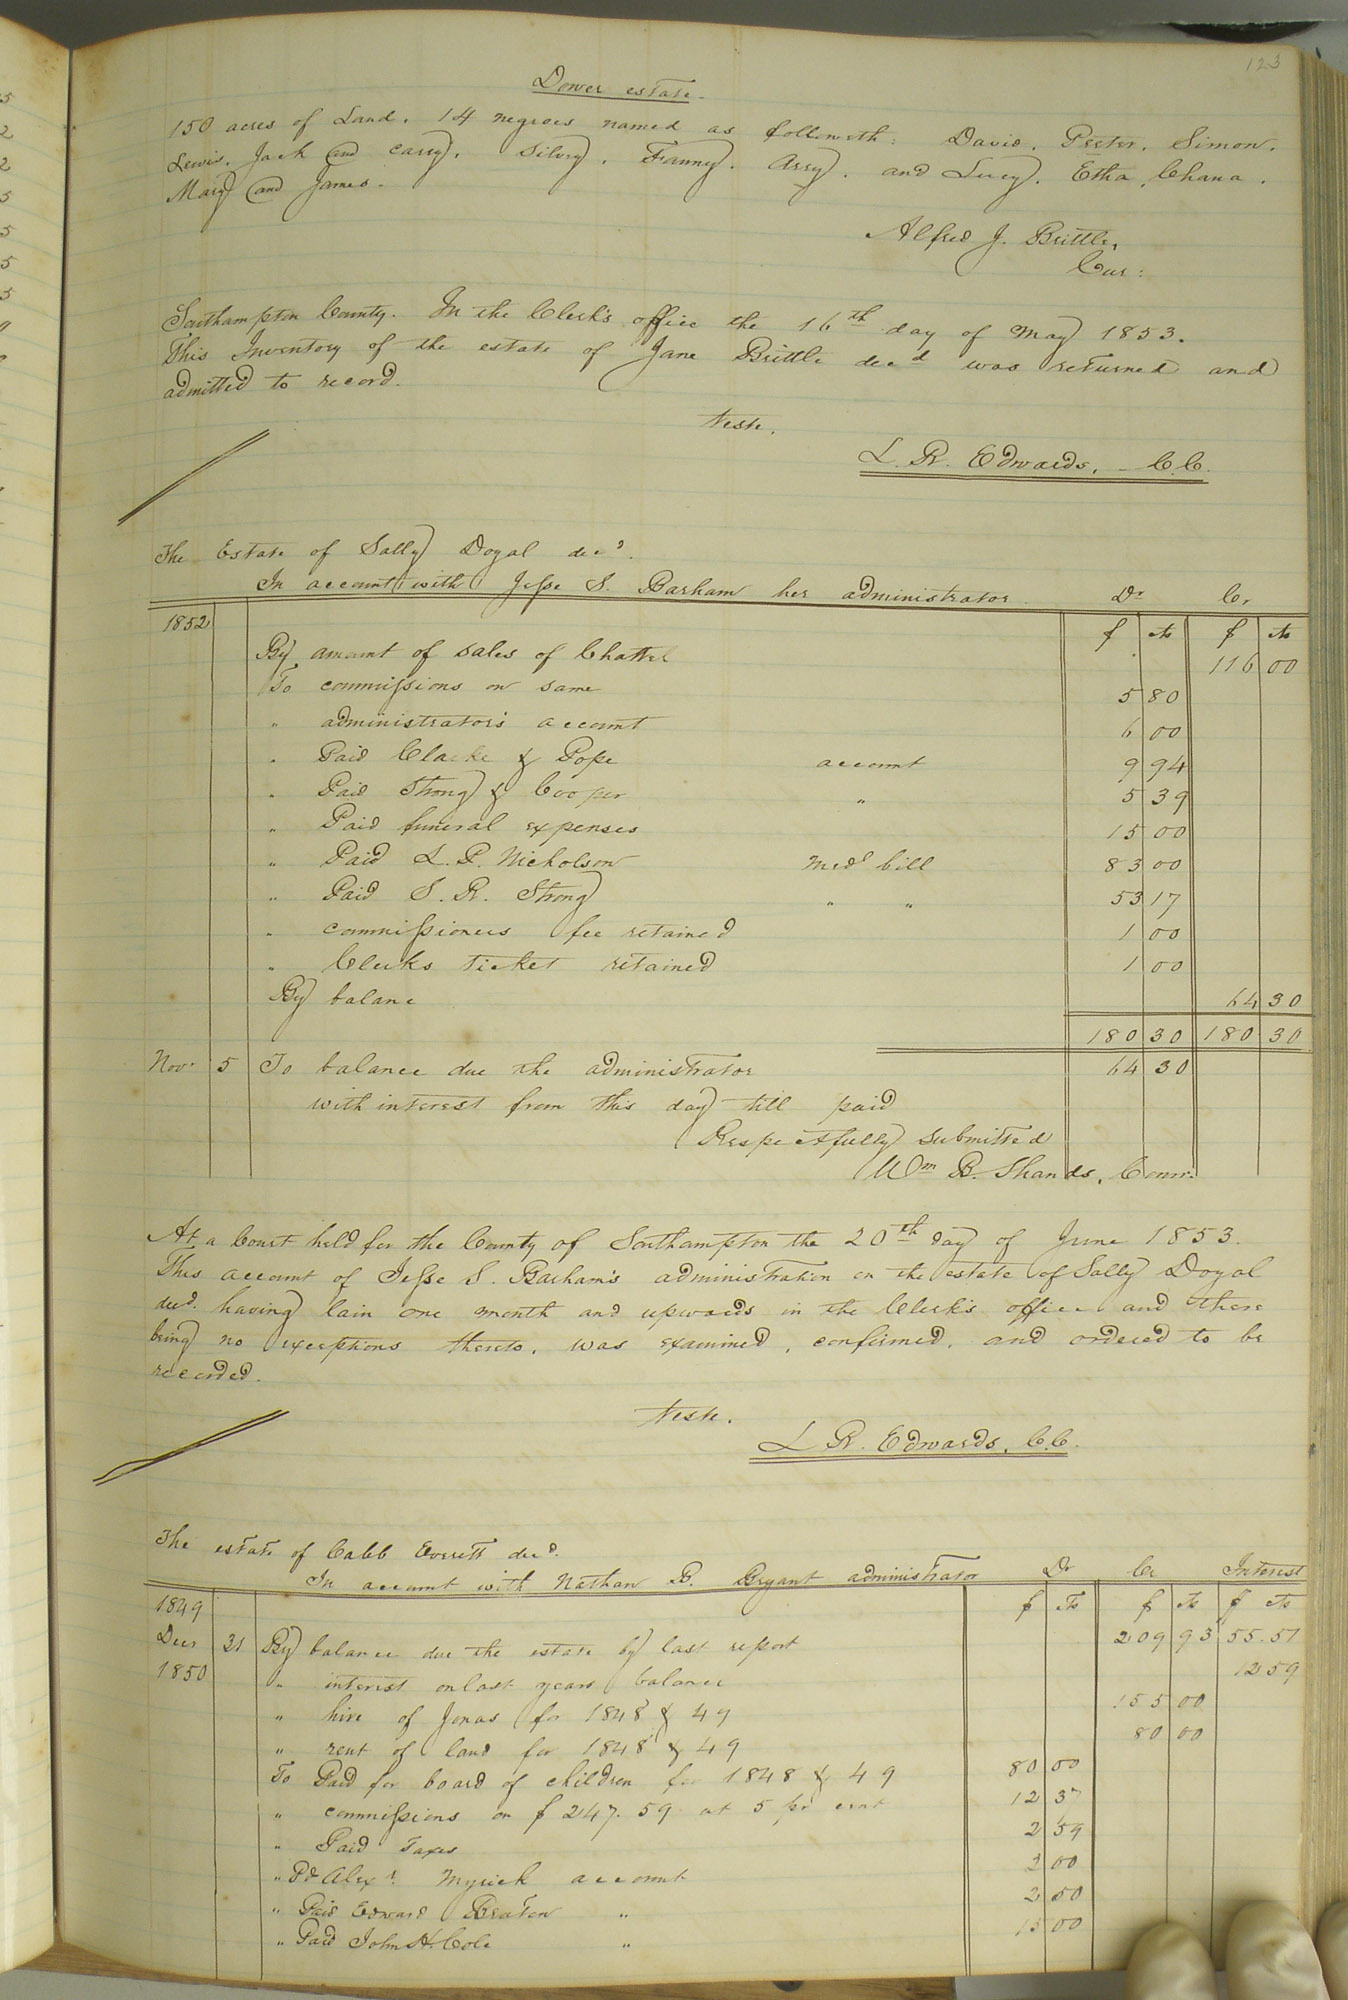 123
Dower estate.
150 acres of Land. 14 negroes named as followeth: David, Peeter, Simon.
Lewis, Jack and Carey, Silvy, Fanny, Arry, and Lucy, Etha, Chana.
Mary and James.
Alfred J. Brittle,
Cur:
Southampton County. In the Clerk's office the 16th day of May 1853.
This Inventory of the estate of Jane Brittle decd was returned and
admitted to record.
Teste,
L. R. Edwards, C.C.
The Estate of Sally Doyal decd.
In account with Jesse S. Barham her administrator Dr Cr
1852 $ cts $ cts
By amount of sales of Chattel 116 00
To commissions on same 5 80
" administrator's account 6 00
" Paid Clarke & Pope account 9 94
" Paid Strong & Cooper " 5 39
" Paid funeral expenses 15 00
" Paid L. P. Nicholson Medl bill 83 00
" Paid S. R. Strong " " 53 17
" commissioners fee retained 1 00
" Clerks ticket retained 1 00
By balance 64 30
180 30 180 30
Nov. 5 To balance due the administrator 64 30
with interest from this day till paid
Respectfully submitted
Wm B. Shands, Comr.
At a Court held for the County of Southampton the 20th day of June 1853.
This account of Jesse S. Barham's administration on the estate of Sally Doyal
decd. having lain one month and upwards in the Clerk's office and there
being no exceptions thereto, was examined, confirmed, and ordered to be
recorded.
Teste.
L R. Edwards, C.C.
The estate of Calib Everett decd.
In account with Nathan B. Bryant administrator Dr Cr Interest
1849 $ cts $ cts $ cts
Decr 31 By balance due the estate by last report 209 93 55.51
1850 " interest on last years balance 12 59
" hire of Jonas for 1848 & 49 155 00
" rent of land for 1848 & 49 80 00
To Paid for board of children for 1848 & 49 80 00
" commissions on $247.59 at 5 pr cent 12 37
" Paid Taxes 2 59
" Pd Alexr. Myrick account 2 00
" Paid Edward Beaton " 2 50
" Paid John H. Cole " 15 00